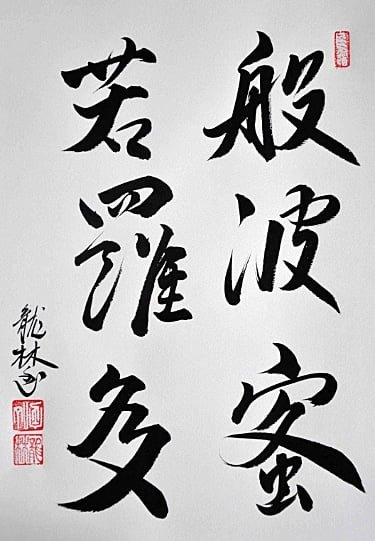 般若
波羅
蜜多
龍林书